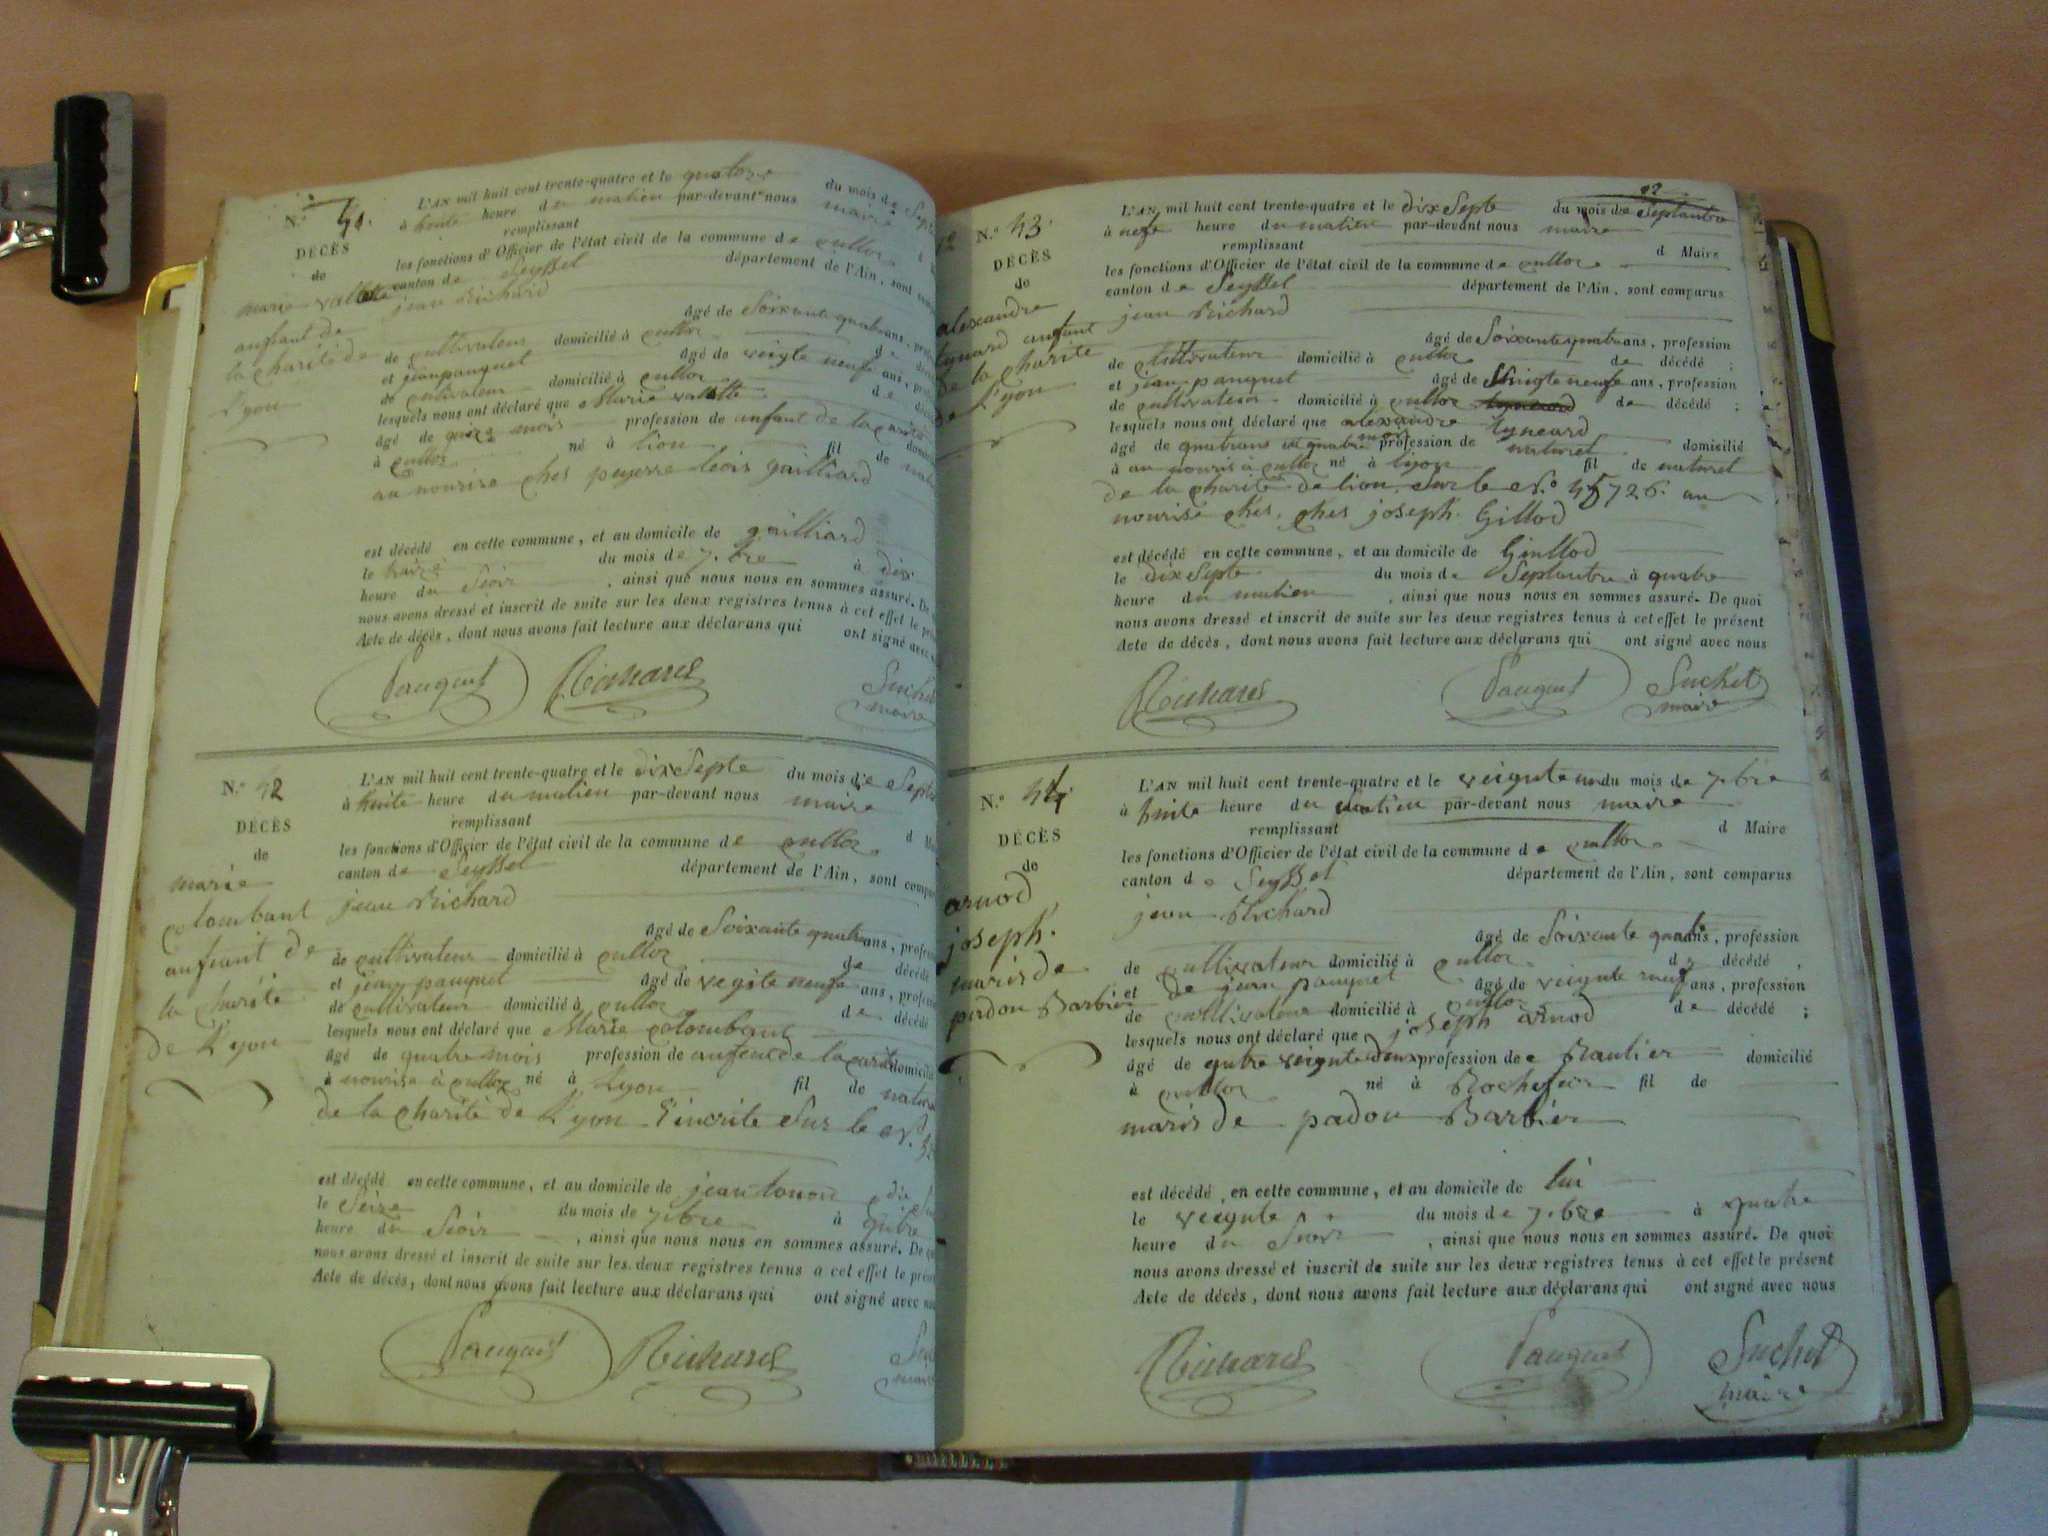 N.º 41.
DÉCÈS
de
marie vallette
anfant de
la charité de
L'yon
L'AN mil huit cent trente-quatre et le quatorze du mois de Sep
à huite heure du matien par-devant nous maire
remplissant
les fonctions d'Officier de l'état civil de la commune de culloz
canton de Seyssel département de l'Ain, sont comp
jean Richard
âgé de Soixante quatre ans, prof
de cultivateur domicilié à culloz de
et jean pauquet âgé de veigte neufe ans, pr
de cultivateur domicilié à culloz de déc
lesquels nous ont déclaré que Marie vallette
âgé de quinze mois profession de anfant de la carité
à culloz né à lion fil de
au nourise ches pierre lois gailliard
est décédé en cette commune, et au domicile de gailliard
le traize du mois de 7.bre à dix
heure du Soir , ainsi que nous nous en sommes assuré. De
nous avons dressé et inscrit de suite sur les deux registres tenus à cet effet le pr
Acte de décès, dont nous avons fait lecture aux déclarans qui ont signé avec
Pauquet Richard Suchet
maire
N.º 42
DÉCÈS
de
marie
colombant
anfant de
la charité
de L'yon
L'AN mil huit cent trente-quatre et le dix Septe du mois de Sept
à huite heure du matien par-devant nous maire
remplissant d M
les fonctions d'Officier de l'état civil de la commune de culloz
canton de Seyssel département de l'Ain, sont compar
jean Richard
âgé de Soixante quatre ans, profe
de cultivateur domicilié à culloz de décédé
et jean pauquet âgé de vegite neufe ans, profe
de cultivateur domicilié à culloz de décédé
lesquels nous ont déclaré que Marie colombant
âgé de quatre mois profession de anfent de la carité domicili
à nourise à culloz né à Lyon fil de natur
de la charité de L'yon l'incrite Sur le N.º
est décédé en cette commune, et au domicile de jean
le Seize du mois de 7.bre à qutre
heure du Soir , ainsi que nous nous en sommes assuré. De q
nous avons dressé et inscrit de suite sur les deux registres tenus à cet effet le prés
Acte de décès, dont nous avons fait lecture aux déclarans qui ont signé avec no
Pauquet Richard
N.º 43.
DÉCÈS
de
alexandre
tynard anfant
de la charité
de L'yon
L'AN mil huit cent trente-quatre et le dix Septe du mois de Septantre
à neufe heure du matien par-devant nous maire
remplissant d Maire
les fonctions d'Officier de l'état civil de la commune de culloz
canton de Seyssel département de l'Ain, sont comparus
jean Richard
âgé de Soixante quatre ans, profession
de cultivateur domicilié à culloz de décédé ;
et jean pauquet âgé de veigte neufe ans, profession
de cultivateur domicilié à culloz de décédé ;
lesquels nous ont déclaré que alexandre tyneard
âgé de quatrans et quatre mois profession de naturel domicilié
à au nouris à culloz né à lyon fil de naturel
de la charité de lion, Sur le N.º 45726. au
nourise ches. ches joseph. Gillod
est décédé en cette commune, et au domicile de Guillod
le dix Septe du mois de Septantre à quatre
heure du matien , ainsi que nous nous en sommes assuré. De quoi
nous avons dressé et inscrit de suite sur les deux registres tenus à cet effet le présent
Acte de décès, dont nous avons fait lecture aux déclarans qui ont signé avec nous
Richard Pauquet Suchet
maire
N.º 44.
DÉCÈS
de
arnod
joseph.
maris de
padou Barbier
L'AN mil huit cent trente-quatre et le veignte un du mois de 7.bre
à huite heure du matien par-devant nous maire
remplissant d Maire
les fonctions d'Officier de l'état civil de la commune de culloz
canton de Seyssel département de l'Ain, sont comparus
jean Richard
âgé de Soixante quatre ans, profession
de cultivateur domicilié à culloz de décédé ,
et de jean pauquet âgé de veignte neuf ans, profession
de cultivateur domicilié à culloz de décédé ;
lesquels nous ont déclaré que joseph arnod
âgé de qutre veignte deux profession de Rantier domicilié
à culloz né à Rochefor fil de
maris de padou Barbier
est décédé en cette commune, et au domicile de lui
le veignte du mois de 7.bre à quatre
heure du Soir , ainsi que nous nous en sommes assuré. De quoi
nous avons dressé et inscrit de suite sur les deux registres tenus à cet effet le présent
Acte de décès, dont nous avons fait lecture aux déclarans qui ont signé avec nous
Richard Pauquet Suchet
maire